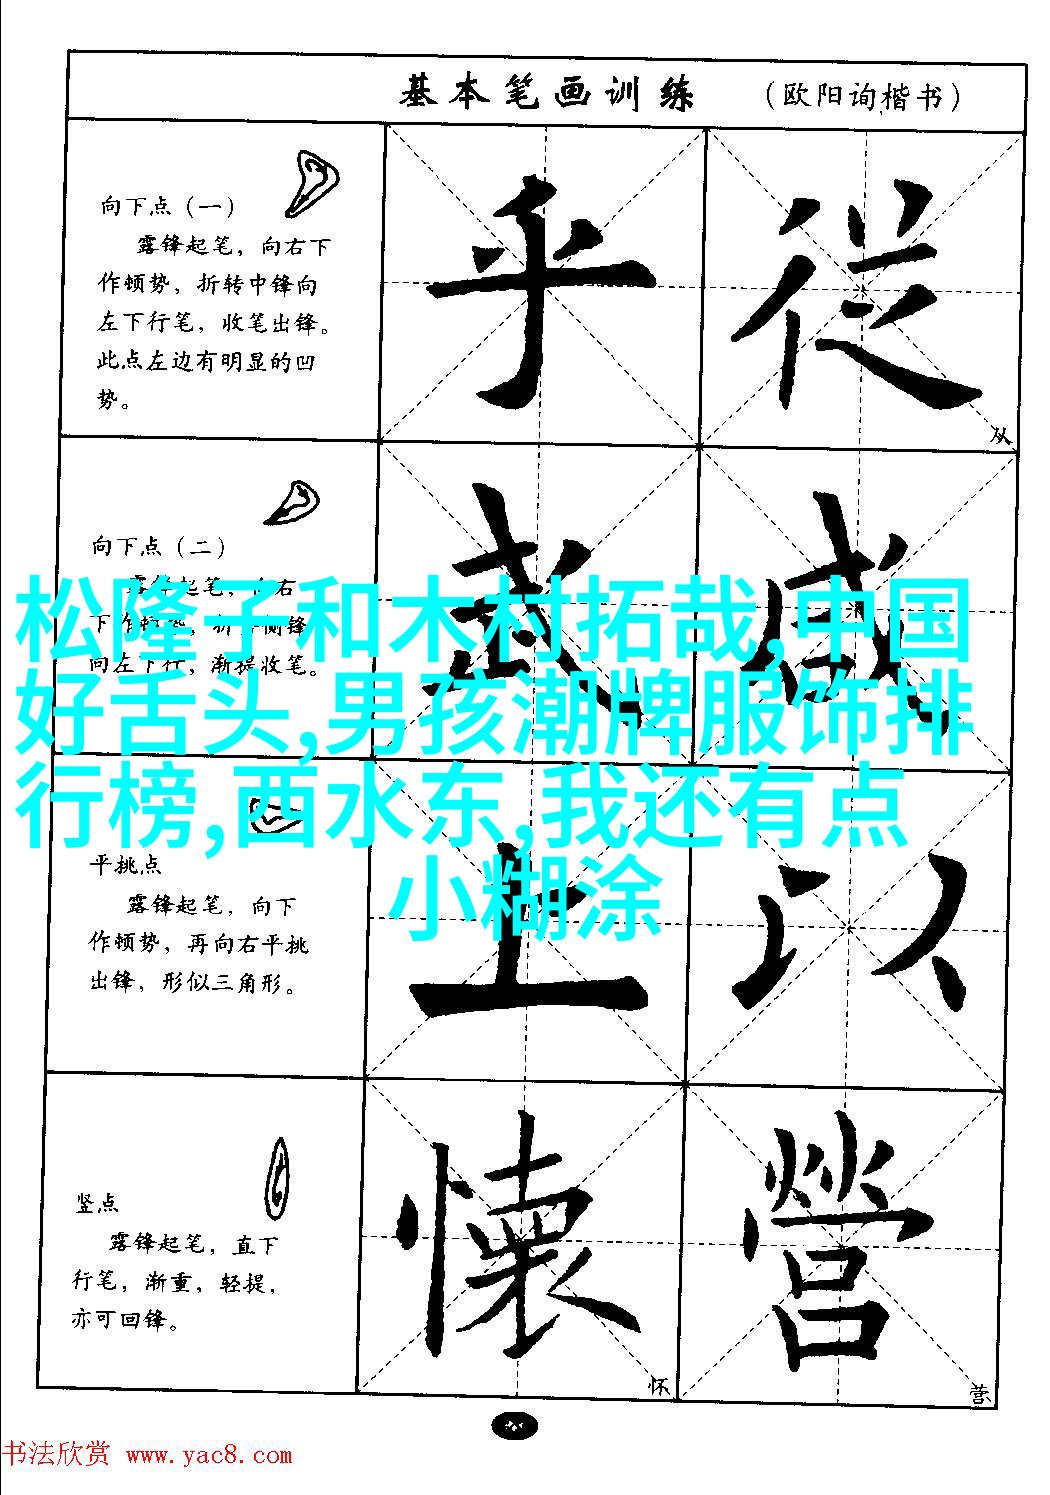 基本笔画训练 （欧阳询楷书）
向下点（一）
露锋起笔，向右下
作顿势，折转中锋向
左下行笔，收笔出锋。
此点左边有明显的凹
势。
乎 從
从
向下点（二）
露锋起笔，向右
下作顿势，折转侧锋
向左下行，渐提收笔。
武 咸
松隆子和木村拓哉,中国
好舌头,男孩潮牌服饰排
行榜,西水东,我还有点
小糊涂
平挑点
露锋起笔，向下
作顿势，再向右平挑
出锋，形似三角形。
上 以
竖点
露锋起笔，直下
行笔，渐重，轻提，
亦可回锋。
懷 營
怀 营
书法欣赏 www.yac8.com